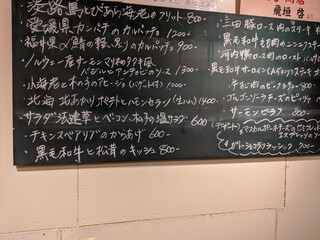 淡路島とびあら海老のフリット 800-
愛媛県カンパチのカルパッチョ 1200-
福井県〆鯖の軽い炙りのカルパッチョ 900-
ノルウェー産サーモンマリネ
バジルとアンチョビのソース 1300-
小海老と木の子のアヒージョ(バゲット付) 1000-
北海 北あかりポテトとハモンセラノ(生ハム) 1400-
サラダ法蓮草とベーコン、木の子の温サラダ 600
チキンスペアリブのからあげ 600-
黒毛和牛と松茸のキッシュ 800-
飛垣 啓
三田豚ロース肉のステーキ
黒毛和牛もも肉のミンチステーキ
河内鴨ロース肉のロースト
黒毛和牛サーロイン
牛すじ肉の 800-
ゴルゴンゾーラチーズのピッツァ
サーモンピラフ 800-
(デザート)
マスカルポーネチーズの
ガトーショコラクラシック 700-